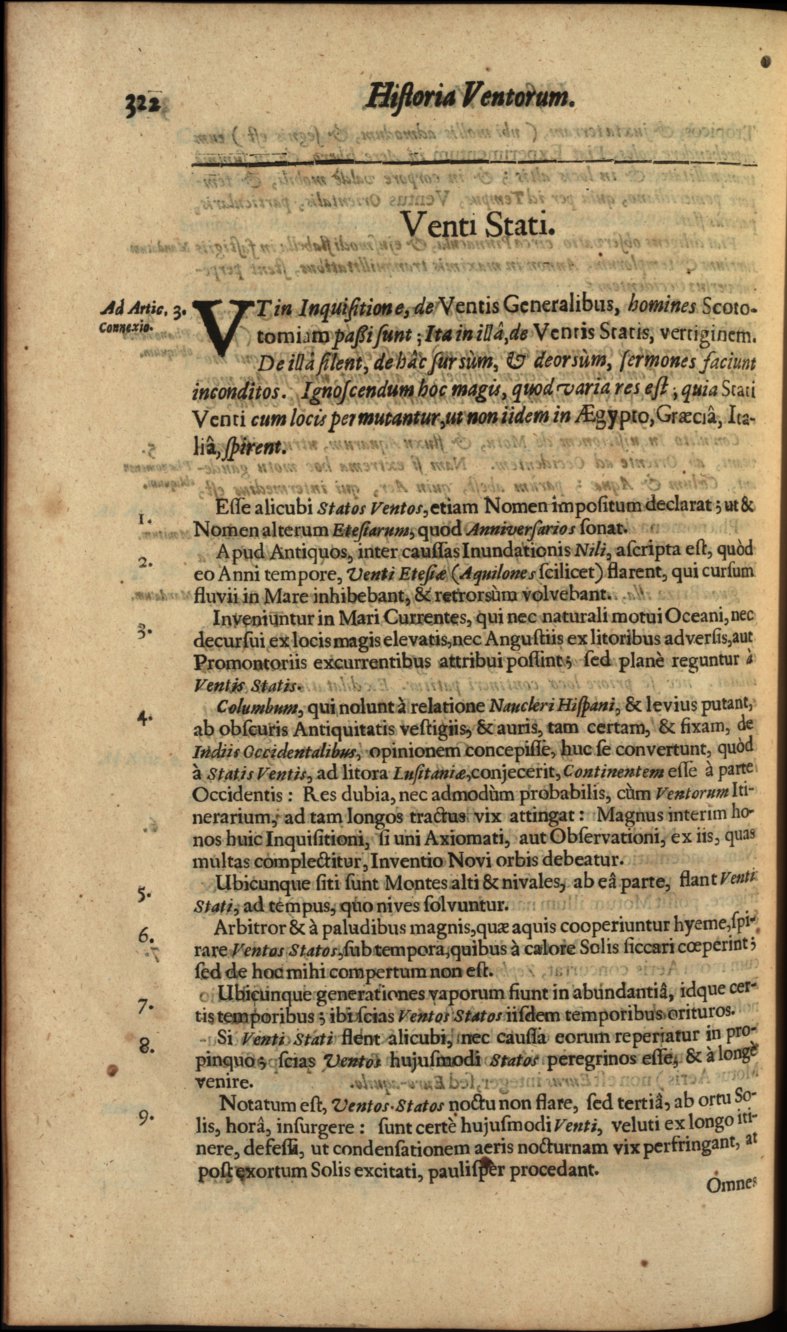 322
Historia Ventorum.
Venti Stati.
Ad Artic. 3.
Connexio.
VT in Inquisitione, de Ventis Generalibus, homines Scoto-
tomiam passi sunt; Ita in illâ, de Ventis Statis, vertiginem.
De illâ silent, de hâc sursùm, & deorsùm, sermones faciunt
inconditos. Ignoscendum hoc magis, quod varia res est; quia Stati
Venti cum locis permutantur, ut non iidem in Ægypto, Græciâ, Ita-
liâ, spirent.
1. Esse alicubi Statos Ventos, etiam Nomen impositum declarat; ut &
Nomen alterum Etesiarum, quod Anniversarios sonat.
2. Apud Antiquos, inter caussas Inundationis Nili, ascripta est, quòd
eo Anni tempore, Venti Etesiæ (Aquilones scilicet) flarent, qui cursum
fluvii in Mare inhibebant, & retrorsùm volvebant.
3. Inveniuntur in Mari Currentes, qui nec naturali motui Oceani, nec
decursui ex locis magis elevatis, nec Angustiis ex litoribus adversis, aut
Promontoriis excurrentibus attribui possint; sed planè reguntur à
Ventis Statis.
4. Columbum, qui nolunt à relatione Naucleri Hispani, & levius putant,
ab obscuris Antiquitatis vestigiis, & auris, tam certam, & fixam, de
Indiis Occidentalibus, opinionem concepisse, huc se convertunt, quòd
à Statis Ventis, ad litora Lusitaniæ, conjecerit, Continentem esse à parte
Occidentis: Res dubia, nec admodùm probabilis, cùm Ventorum Iti-
nerarium, ad tam longos tractus vix attingat: Magnus interim ho-
nos huic Inquisitioni, si uni Axiomati, aut Observationi, ex iis, quas
multas complectitur, Inventio Novi orbis debeatur.
5. Ubicunque siti sunt Montes alti & nivales, ab eâ parte, flant Venti
Stati, ad tempus, quo nives solvuntur.
6. Arbitror & à paludibus magnis, quæ aquis cooperiuntur hyeme, spi-
rare Ventos Statos, sub tempora, quibus à calore Solis siccari cœperint;
sed de hoc mihi compertum non est.
7. Ubicunque generationes vaporum fiunt in abundantiâ, idque cer-
tis temporibus; ibi scias Ventos Statos iisdem temporibus orituros.
8. Si Venti Stati flent alicubi, nec caussa eorum reperiatur in pro-
pinquo; scias Ventos hujusmodi Statos peregrinos esse, & à longè
venire.
9. Notatum est, Ventos Statos noctu non flare, sed tertiâ, ab ortu So-
lis, horâ, insurgere: sunt certè hujusmodi Venti, veluti ex longo iti-
nere, defessi, ut condensationem aeris nocturnam vix perfringant, at
post exortum Solis excitati, paulisper procedant.
Omnes